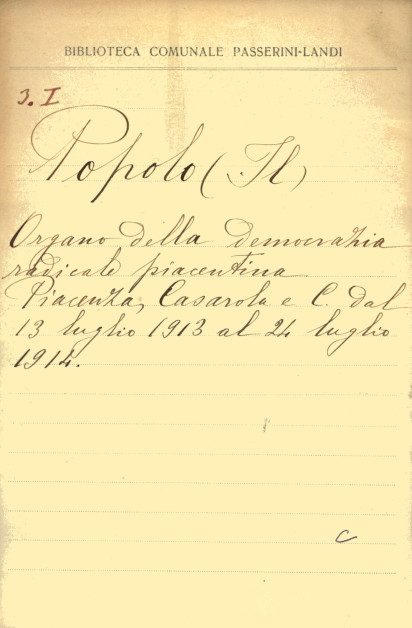 BIBLIOTECA COMUNALE PASSERINI-LANDI
3. I
Popolo (Il)
Organo della democrazia
radicale piacentina
Piacenza, Casarola e C. dal
13 luglio 1913 al 24 luglio
1914.
C